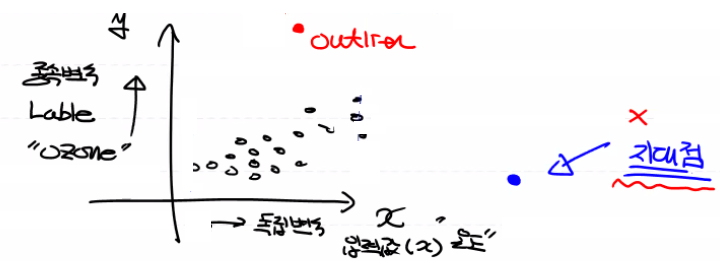 y
outlier
종속변수
Lable
"ozone"
x
지대점
→ 독립변수
x
입력값(x) "온도"